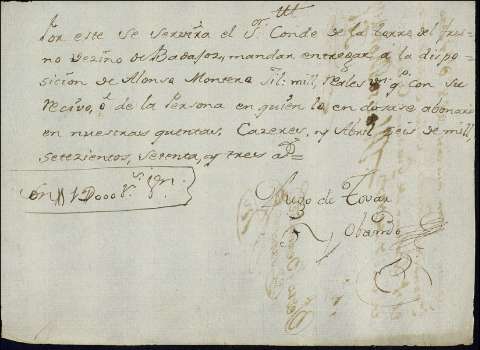 Por este se servira el Sr. Conde de la torre del fres=
no vezino de Badajoz, mandar entregar a la dispo=
sicion de Alonso Montero mill, reales vn. qe. con su
recivo, o de la Persona en quien lo endosare abonare
en nuestras quentas, Cazeres, y Abril seis de mill,
setezientos, setenta, y tres as.=
Son D000 rs. vn.
Hugo de Tovar
Obando